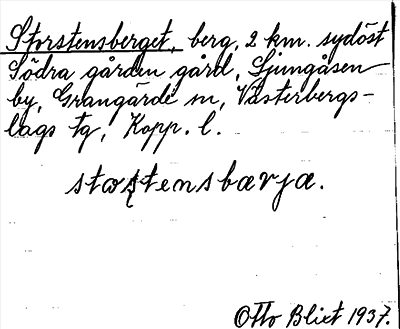 Storstensberget, berg, 2 km. sydöst
Södra gården gård, Ljungåsen
by, Grangärde sn, Västerbergs-
lags tg, Kopp. l.
Otto Blixt 1937.